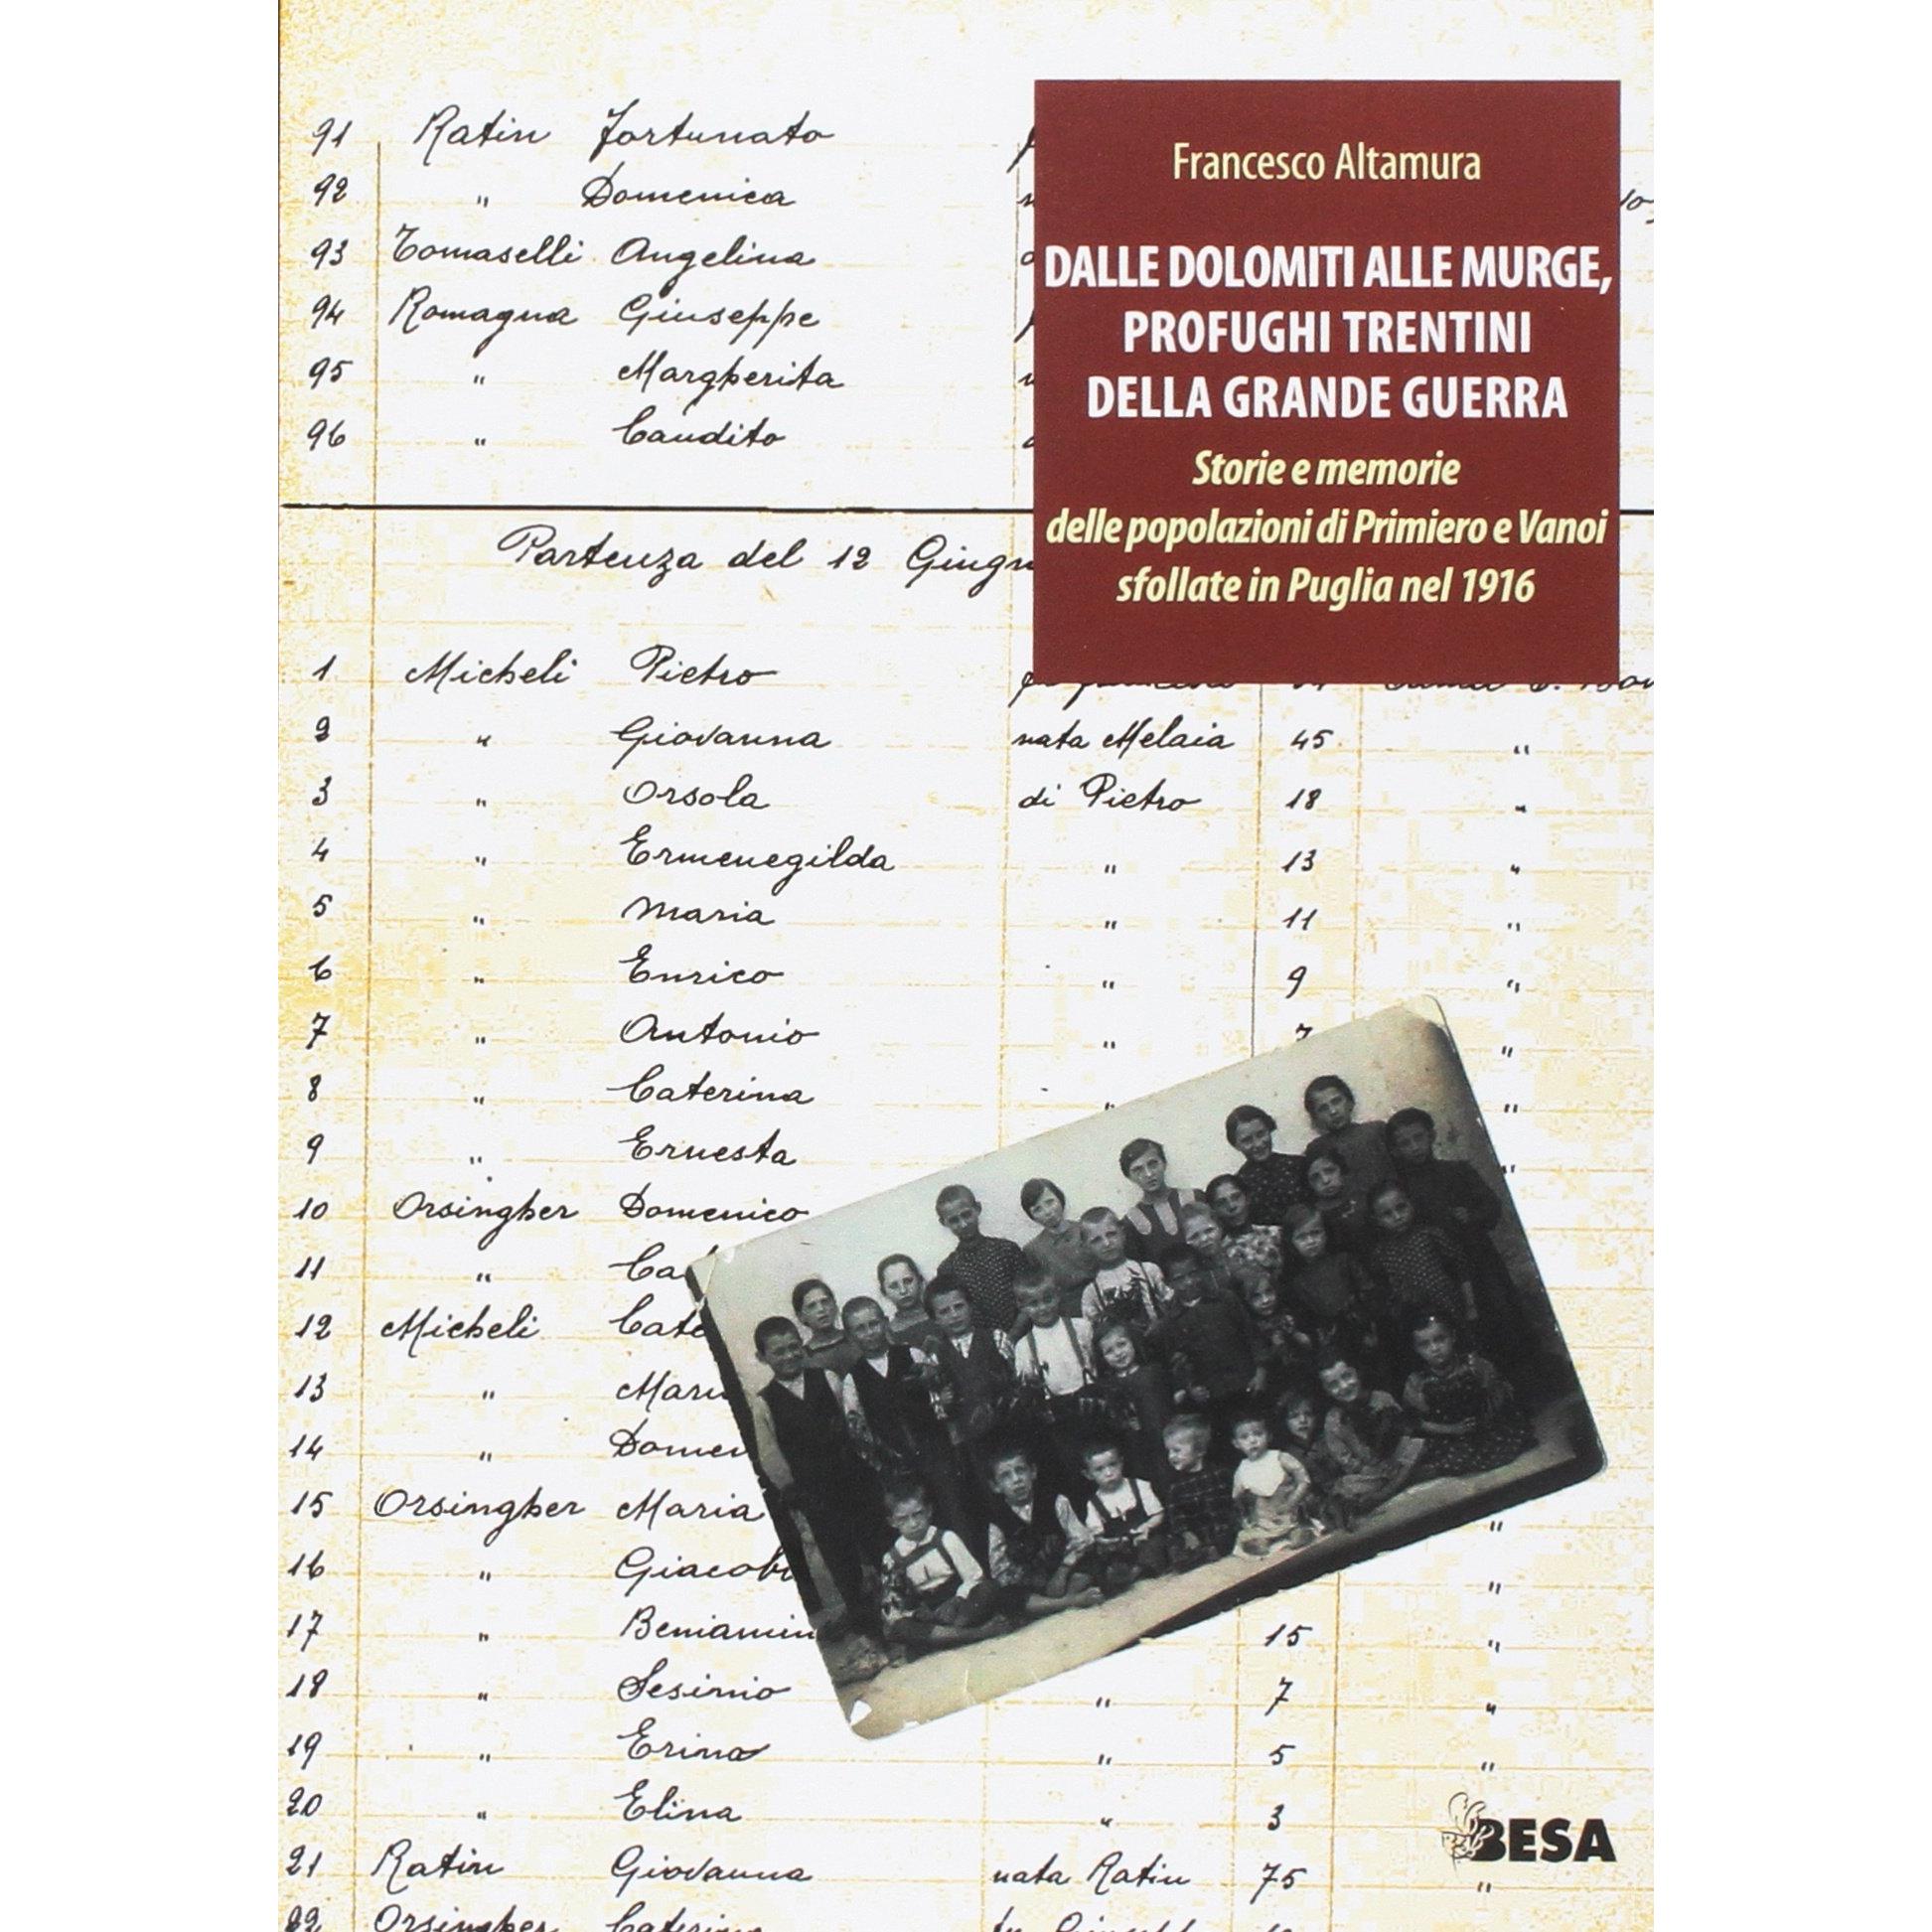 Francesco Altamura
DALLE DOLOMITI ALLE MURGE,
PROFUGHI TRENTINI
DELLA GRANDE GUERRA
Storie e memorie
delle popolazioni di Primiero e Vanoi
sfollate in Puglia nel 1916
91 Ratin Fortunato
92 " Domenica
93 Tomaselli Angelina
94 Romagna Giuseppe
95 " Margherita
96 " Candito
Partenza del 12
1 Micheli Pietro
2 " Giovanna nata Melaia 45 "
3 " Orsola di Pietro 18 "
4 " Ermenegilda " 13 "
5 " Maria " 11 "
6 " Enrico " 9 "
7 " Antonio " 7 "
8 " Caterina " "
9 " Ernesta "
10 Orsingher Domenico
11 "
12 Micheli
13 "
14 "
15 Orsingher Maria "
16 " "
17 " 15 "
18 " Sesinio " 7 "
19 " Erina " 5 "
20 " Elina " 3
21 Ratin Giovanna nata Ratin 75 "
22 Orsingher Caterina
BESA